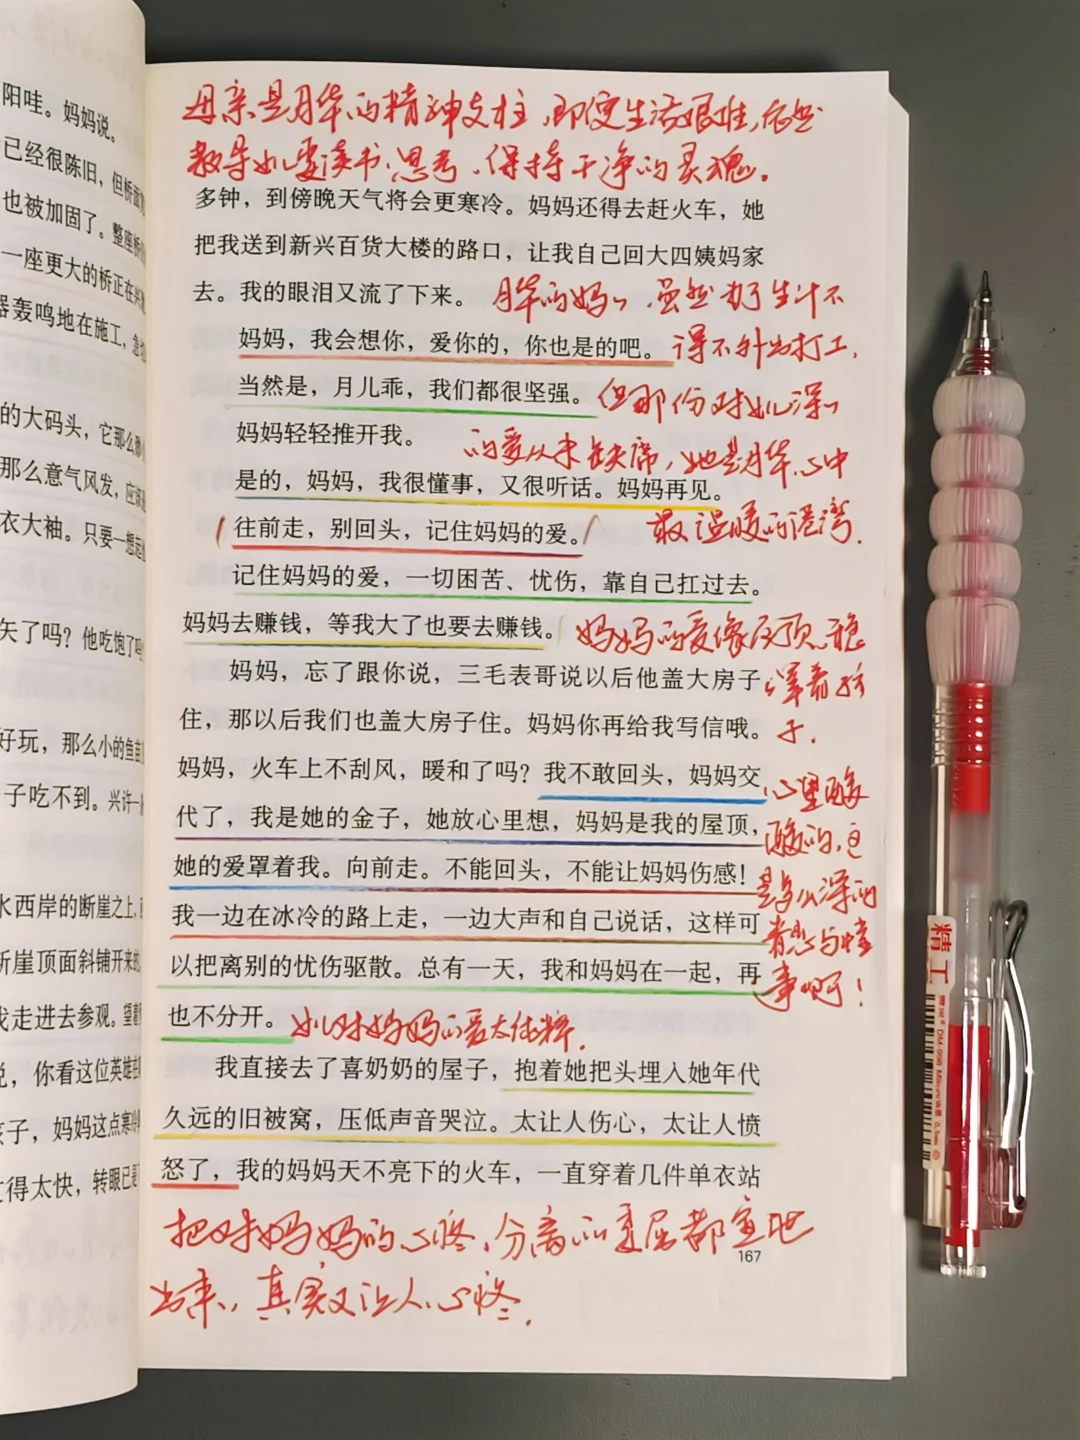 阳哇。妈妈说。
已经很陈旧，但桥面
也被加固了。整座桥
一座更大的桥正在兴
器轰鸣地在施工，急
的大码头，它那么
那么意气风发，应该
衣大袖。只要一想起
矢了吗？他吃饱了吗
好玩，那么小的鱼苗
子吃不到。兴许一
水西岸的断崖之上，
斤崖顶面斜铺开来的
走进去参观。望着
说，你看这位英雄在
孩子，妈妈这点寒
得太快，转眼已是
母亲是月华的精神支柱，即便生活艰难，依然
教导女儿要读书、思考、保持干净的灵魂。
多钟，到傍晚天气将会更寒冷。妈妈还得去赶火车，她
把我送到新兴百货大楼的路口，让我自己回大四姨妈家
去。我的眼泪又流了下来。
月华的妈妈，虽然为了生计不
妈妈，我会想你，爱你的，你也是的吧。
得不外出打工，
当然是，月儿乖，我们都很坚强。
但那份对女儿深深
妈妈轻轻推开我。
的爱从未缺席，她是月华心中
是的，妈妈，我很懂事，又很听话。妈妈再见。
最温暖的港湾。
往前走，别回头，记住妈妈的爱。
记住妈妈的爱，一切困苦、忧伤，靠自己扛过去。
妈妈去赚钱，等我大了也要去赚钱。
妈妈的爱像屋顶，稳稳
妈妈，忘了跟你说，三毛表哥说以后他盖大房子
罩着孩
住，那以后我们也盖大房子住。妈妈你再给我写信哦。
子。
妈妈，火车上不刮风，暖和了吗？我不敢回头，妈妈交
心里酸
代了，我是她的金子，她放心里想，妈妈是我的屋顶，
酸的，这
她的爱罩着我。向前走。不能回头，不能让妈妈伤感！
是多么深的
我一边在冰冷的路上走，一边大声和自己说话，这样可
眷恋与懂
以把离别的忧伤驱散。总有一天，我和妈妈在一起，再
事啊！
也不分开。
女儿对妈妈的爱太纯粹。
我直接去了喜奶奶的屋子，抱着她把头埋入她年代
久远的旧被窝，压低声音哭泣。太让人伤心，太让人愤
怒了，我的妈妈天不亮下的火车，一直穿着几件单衣站
把对妈妈的心疼、分离的委屈都宣泄
出来，真实又让人心疼。
167
精工
DM-998